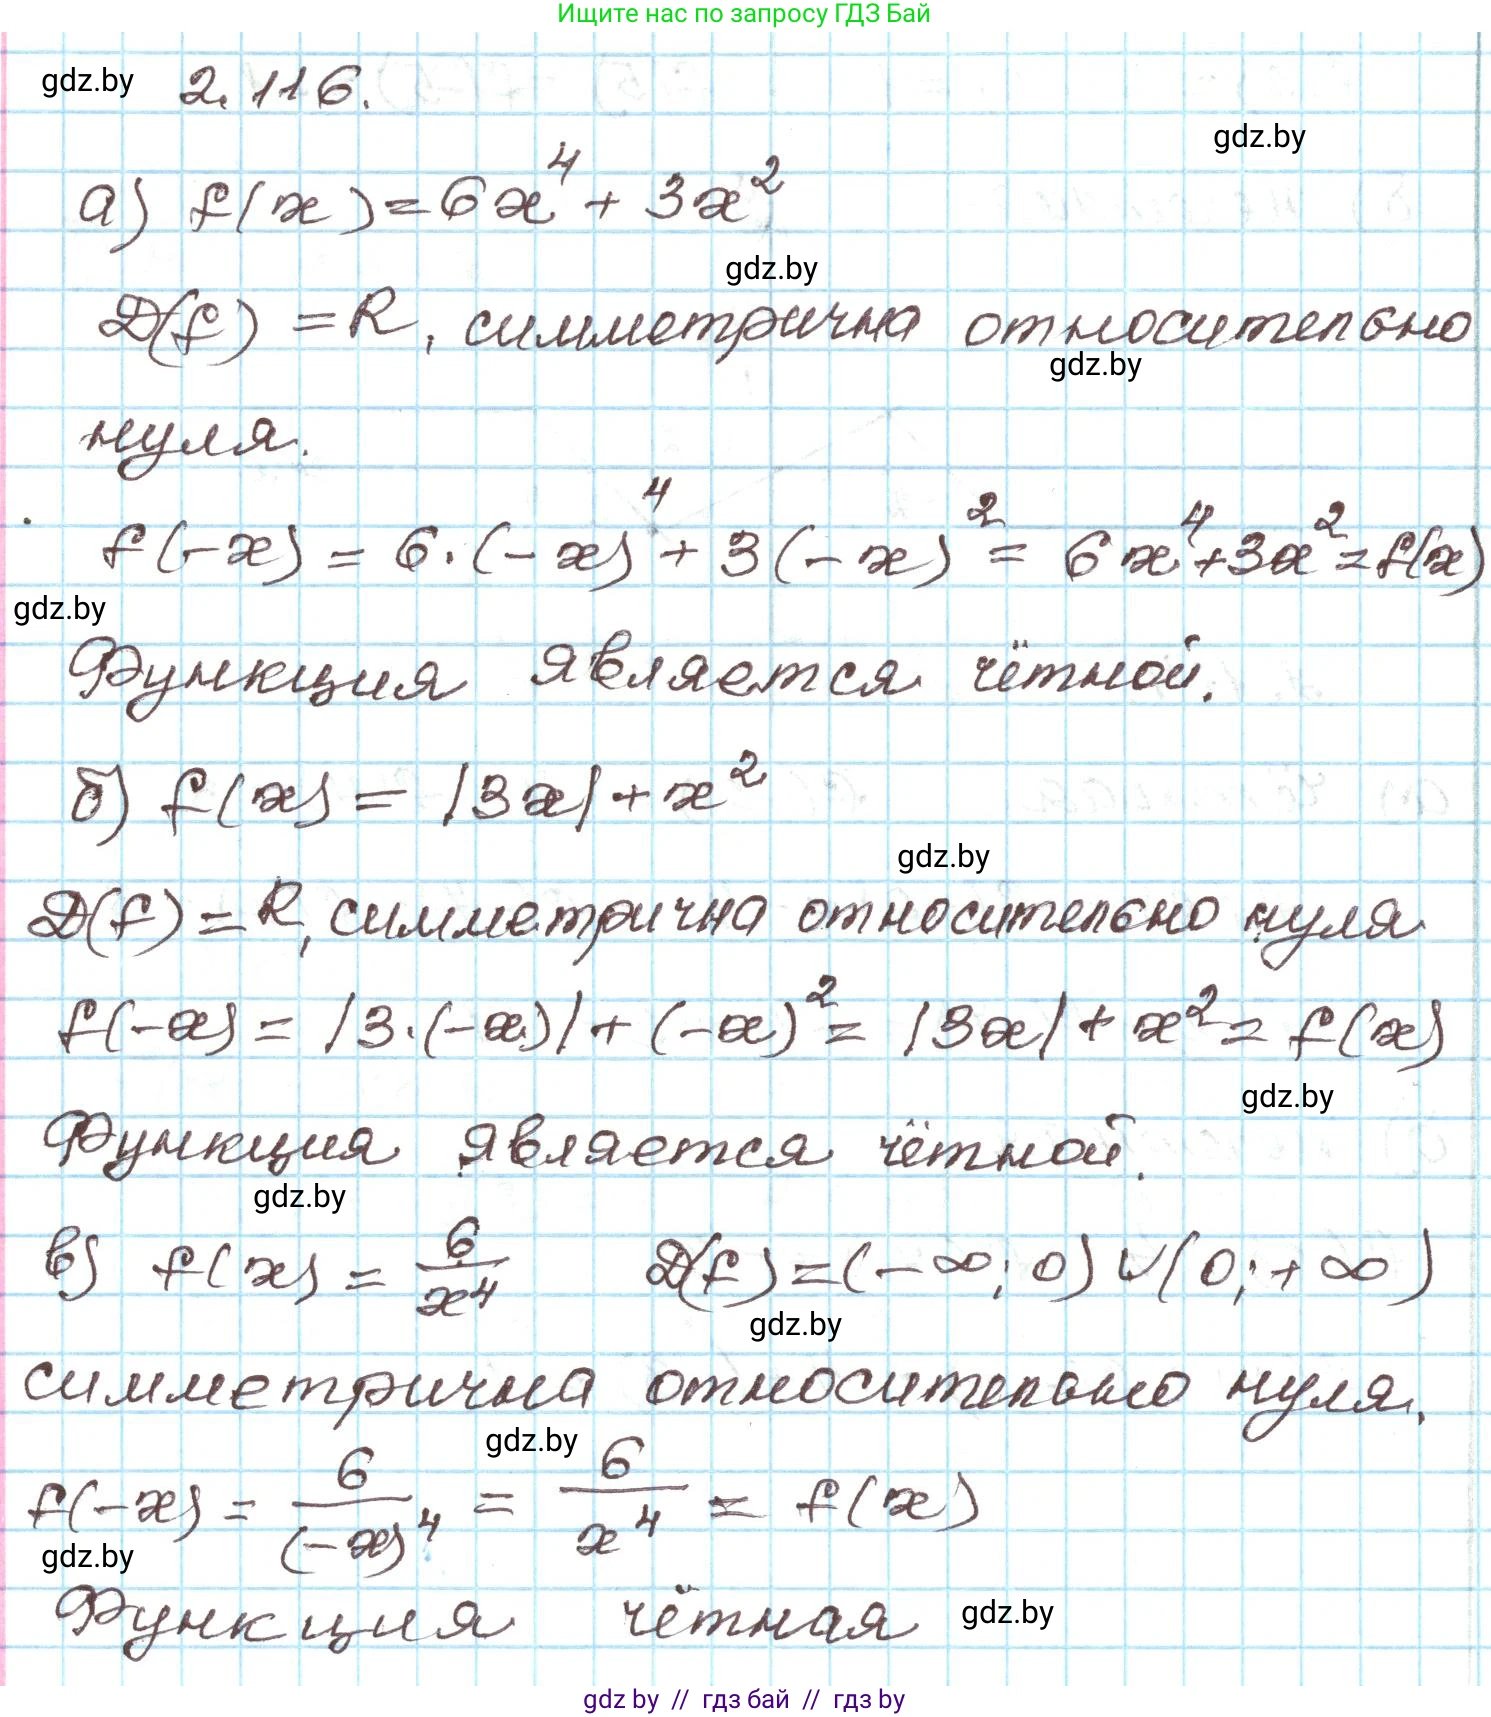 Ищите нас по запросу ГДЗ Бай
gdz.by 2.116.
gdz.by
а) f(x) = 6x⁴ + 3x²
gdz.by
D(f) = R, симметрична относительно
gdz.by
нуля.
f(-x) = 6·(-x)⁴ + 3(-x)² = 6x⁴+3x² = f(x)
gdz.by
Функция является чётной.
б) f(x) = |3x| + x²
gdz.by
D(f) = R, симметрична относительно нуля
f(-x) = |3·(-x)| + (-x)² = |3x| + x² = f(x)
gdz.by
Функция является чётной.
gdz.by
в) f(x) = 6/x⁴ D(f) = (-∞; 0) ∪ (0; +∞)
gdz.by
симметрична относительно нуля.
gdz.by
f(-x) = 6/(-x)⁴ = 6/x⁴ = f(x)
gdz.by
Функция чётная gdz.by
gdz by // гдз бай // гдз by